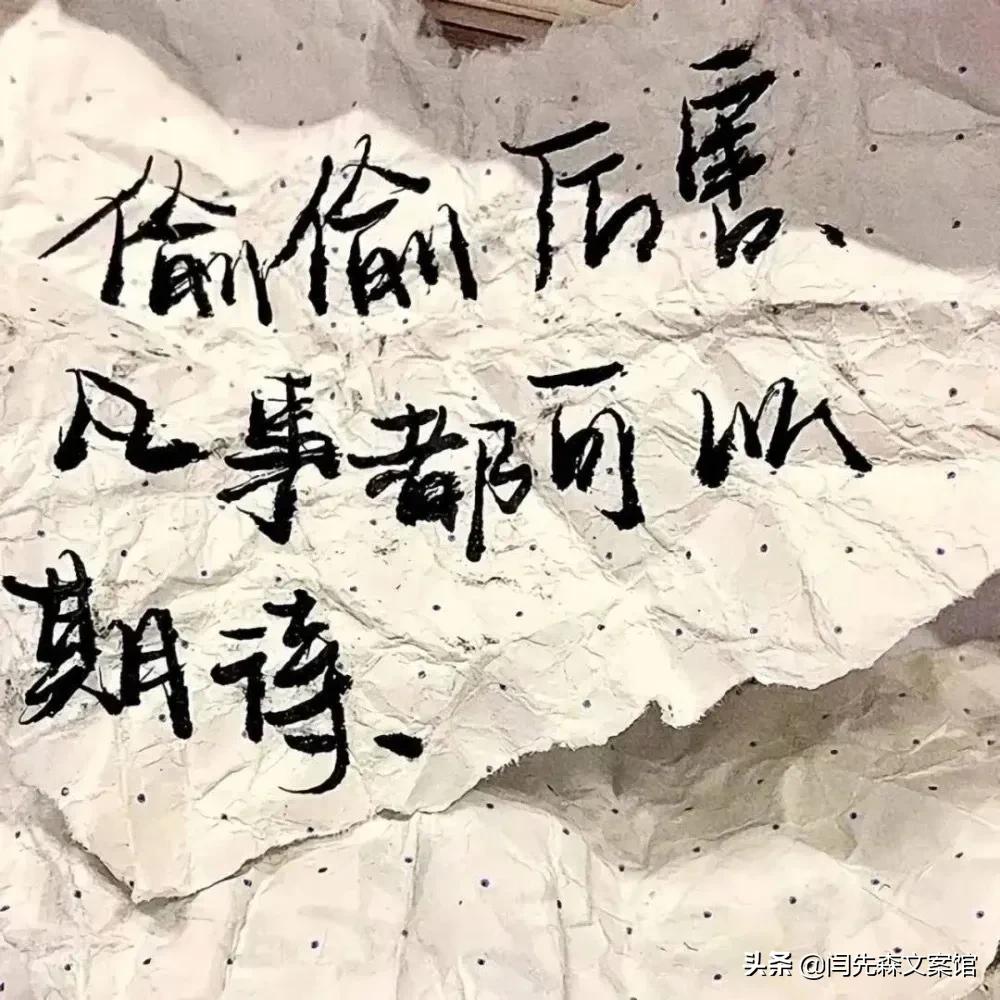 偷偷厉害、
凡事都可以
期待、
头条 @闫先森文案馆